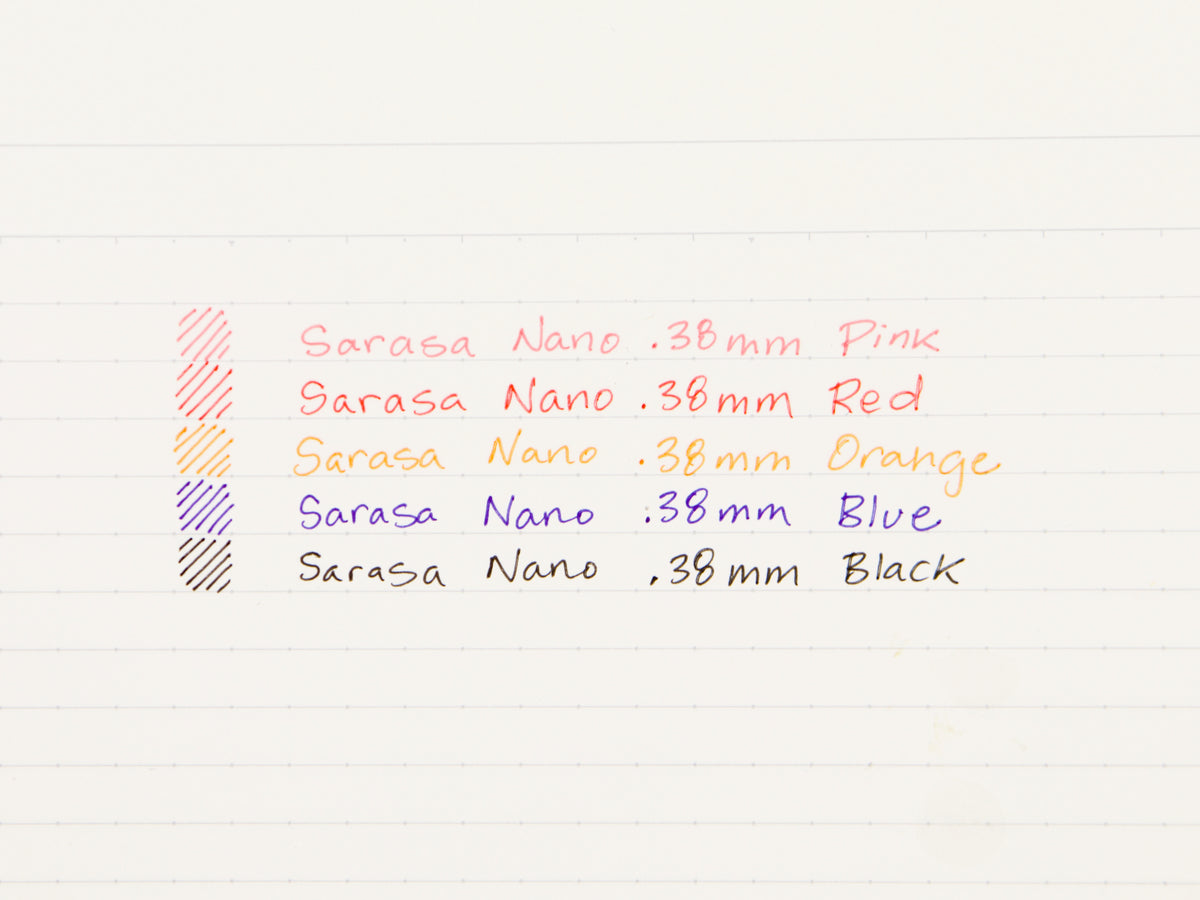 Sarasa Nano .38mm Pink
Sarasa Nano .38mm Red
Sarasa Nano .38mm Orange
Sarasa Nano .38mm Blue
Sarasa Nano .38mm Black